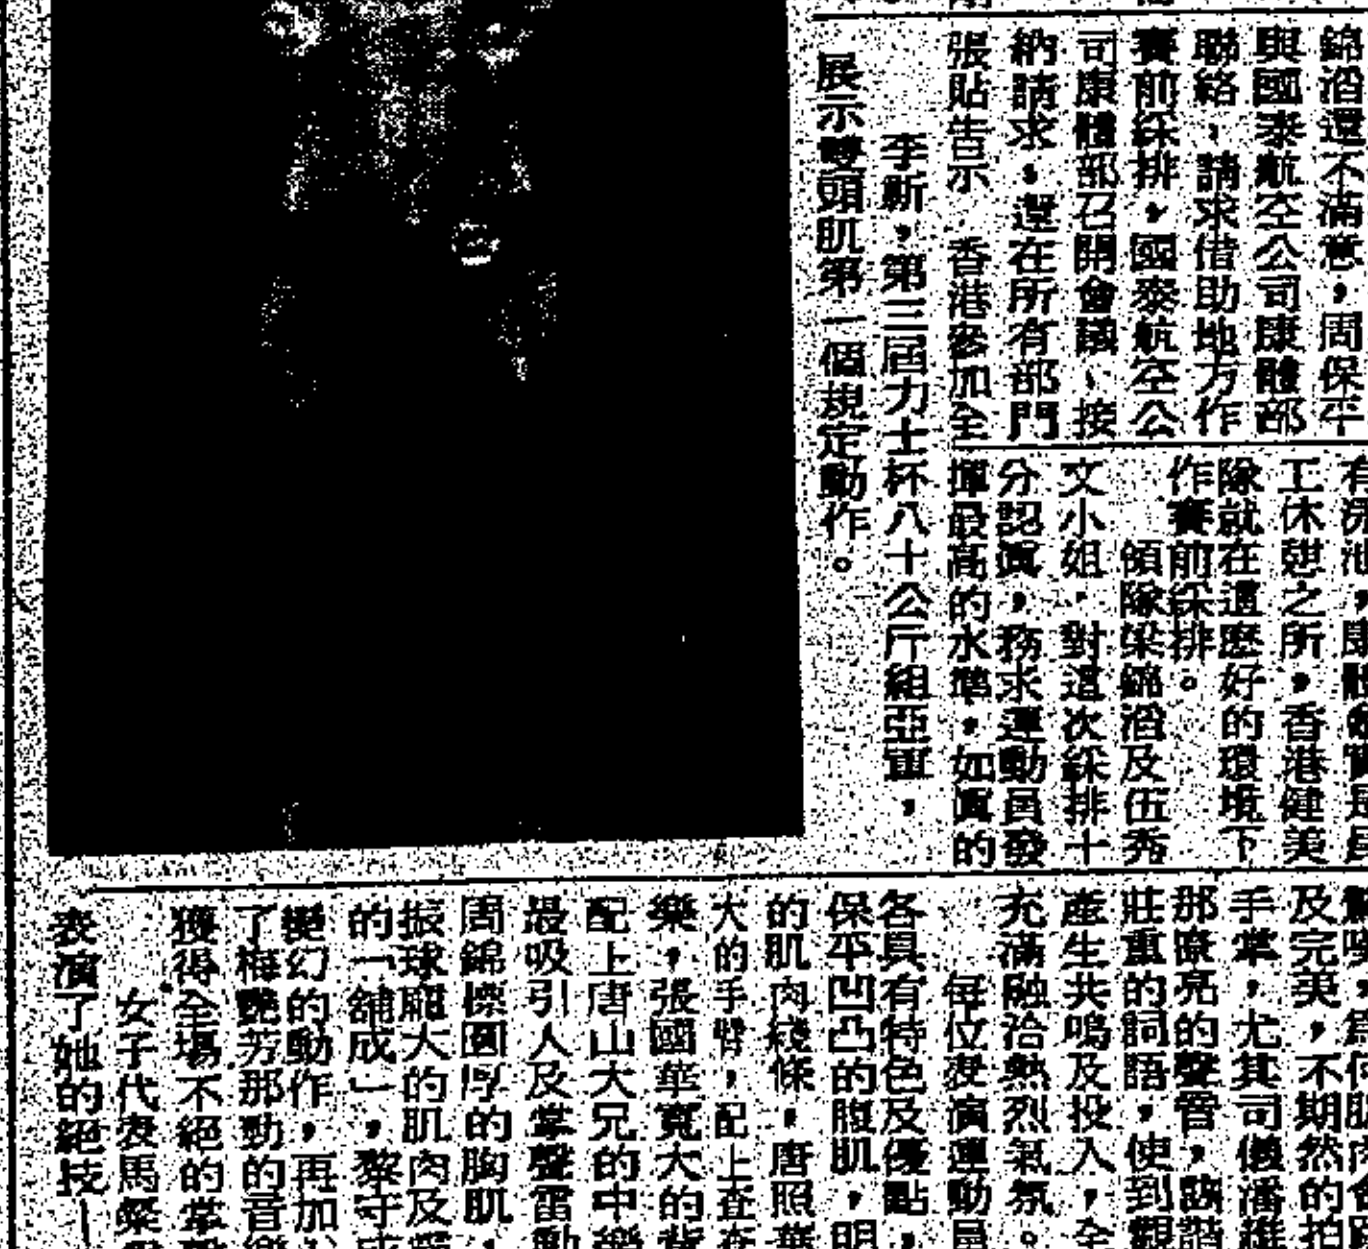 錦滔還不滿意，周保平
與國泰航空公司康體部
聯絡，請求借助地方作
賽前綵排，國泰航空公
司康體部召開會議、接
納請求，還在所有部門
張貼告示，香港參加全
李新，第三屆力士杯八十公斤組亞軍，
展示雙頭肌第一個規定動作。
工休憩之所，香港健美
隊就在這麼好的環境下
作賽前綵排。
領隊梁錦滔及伍秀
文小姐，對這次綵排十
分認真，務求運動員發
揮最高的水準，如真的
及完美，不期然的拍
手掌，尤其司儀潘
那嘹亮的聲音，詼諧
莊重的詞語，使到觀
產生共鳴及投入，全
充滿融洽熱烈氣氛。
每位表演運動員
各具有特色及優點，
保平凹凸的腹肌，明
的肌肉綫條，唐照華
大的手臂，配上
樂，張國華寬大的背
配上唐山大兄的中樂
最吸引人及掌聲雷動
周錦標圓厚的胸肌，
振球龐大的肌肉及
的「舖成」，黎守成
變幻的動作，再加
了梅艷芳那勁的音樂
獲得全場不絕的掌聲
女子代表馬
表演了她的絕技—